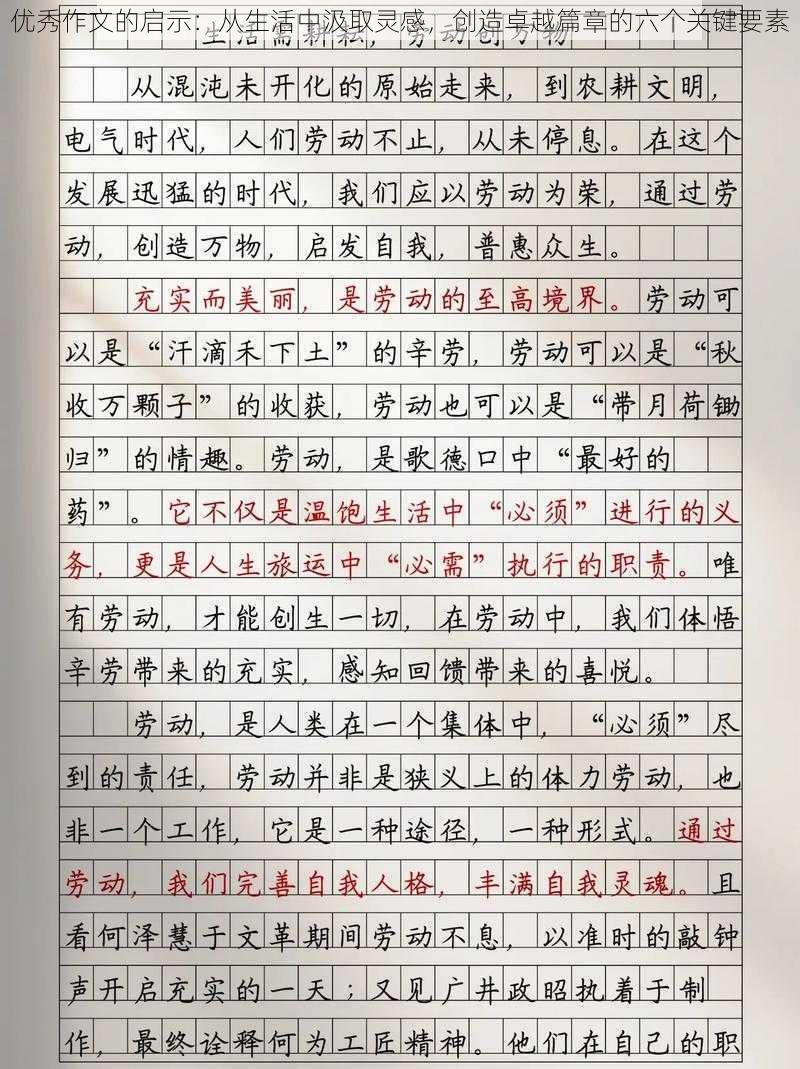 优秀作文的启示：从生活中汲取灵感，创造卓越篇章的六个关键要素
生活需耕耘，劳动创万物
从混沌未开化的原始走来，到农耕文明，
电气时代，人们劳动不止，从未停息。在这个
发展迅猛的时代，我们应以劳动为荣，通过劳
动，创造万物，启发自我，普惠众生。
充实而美丽，是劳动的至高境界。劳动可
以是“汗滴禾下土”的辛劳，劳动可以是“秋
收万颗子”的收获，劳动也可以是“带月荷锄
归”的情趣。劳动，是歌德口中“最好的
药”。它不仅是温饱生活中“必须”进行的义
务，更是人生旅运中“必需”执行的职责。唯
有劳动，才能创生一切，在劳动中，我们体悟
辛劳带来的充实，感知回馈带来的喜悦。
劳动，是人类在一个集体中，“必须”尽
到的责任，劳动并非是狭义上的体力劳动，也
非一个工作，它是一种途径，一种形式。通过
劳动，我们完善自我人格，丰满自我灵魂。且
看何泽慧于文革期间劳动不息，以准时的敲钟
声开启充实的一天；又见广井政昭执着于制
作，最终诠释何为工匠精神。他们在自己的职